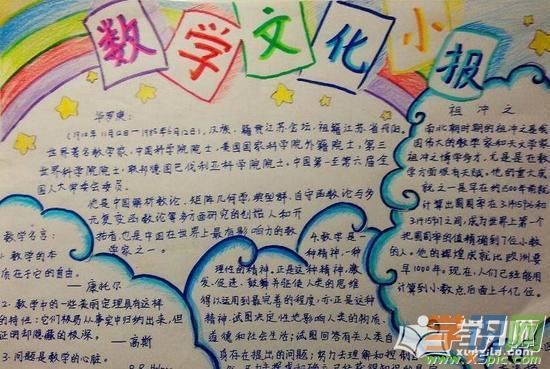 数学文化小报
华罗庚:
(1910年11月12日—1985年6月12日),汉族,籍贯江苏金坛,祖籍江苏省丹阳,
世界著名数学家,中国科学院院士,美国国家科学院外籍院士,第三
世界科学院院士,联邦德国巴伐利亚科学院院士,中国第一至第六届全
国人大常委会委员.
他是中国解析数论、矩阵几何学、典型群、自守函数论与多
元复变函数论等多方面研究的创始人和开
拓者,也是中国在世界上最有影响力的数
学家之一。
祖冲之
南北朝时期的祖冲之是我
国伟大的数学家和天文学家
祖冲之博学多才,尤其是在数
学方面很有天赋,他的重大成
就之一是早在约1500年前就
计算出圆周率在3有1分之6和
3有1分之7之间,成为世界上第一个
把圆周率的值精确到7位小数
的人,他的辉煌成就比欧洲要
早1000年.现在,人们已经能用
计算到小数点后面上千亿位.
数学名言:
数学的本
质在于它的自由.
—康托尔
2.数学中的一些美丽定理具有这样
的特性:它们极易从事实中归纳出来,但
证明却隐藏的极深.
—高斯
3.问题是数学的心脏.
4.数学是一
种精神,一种
理性的精神.正是这种精神,激
发、促进、鼓舞并驱使人类的思维
得以运用到最完善的程度,亦正是这种
精神,试图决定性地影响人类的物质、
道德和社会生活;试图回答有关人类自
身存在提出的问题;努力去理解和控制
学习网
www.